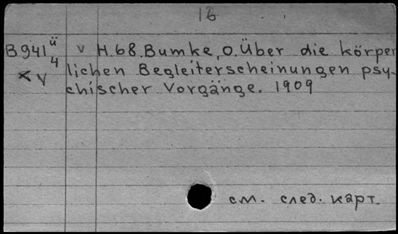 18
B941 ü/4 v H.68. Bumke, O. Über die körper
v lichen Begleiterscheinungen psy-
chischer Vorgänge. 1909
см. след. карт.